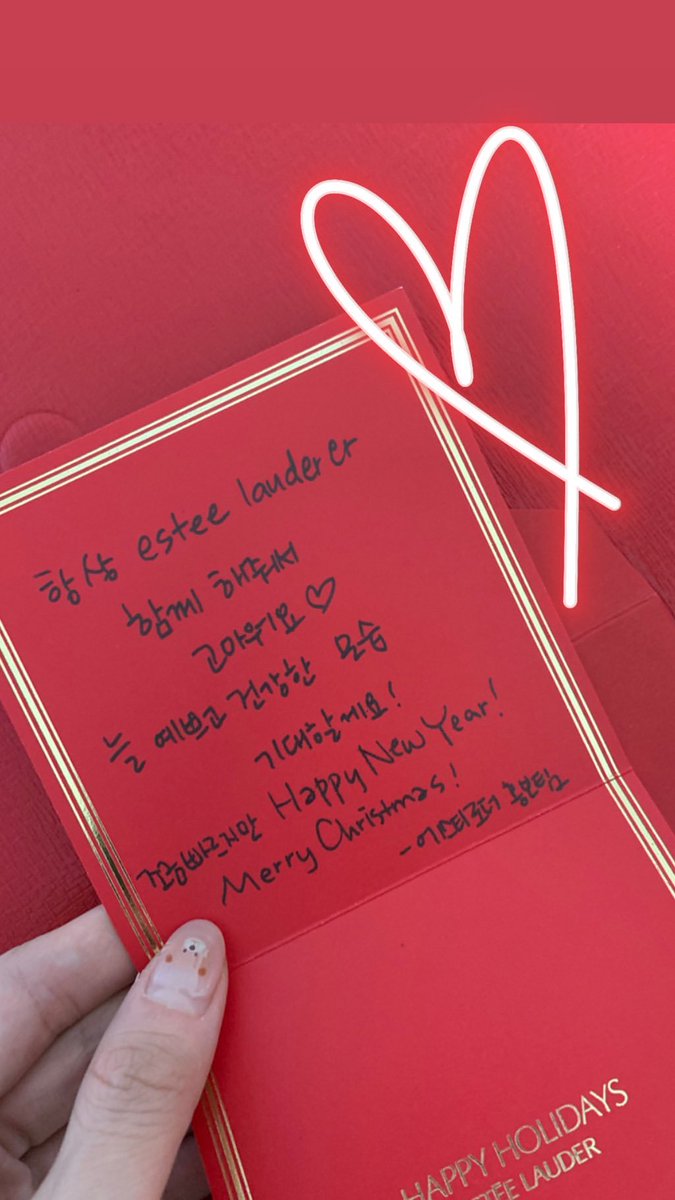 항상 estee lauder er
함께 해줘서
고마워요♡
늘 예쁘고 건강한 모습
기대할게요!
조옴빠르지만 Happy New Year!
Merry Christmas!
-에스티로더 홍보팀
HAPPY HOLIDAYS
ESTÉE LAUDER